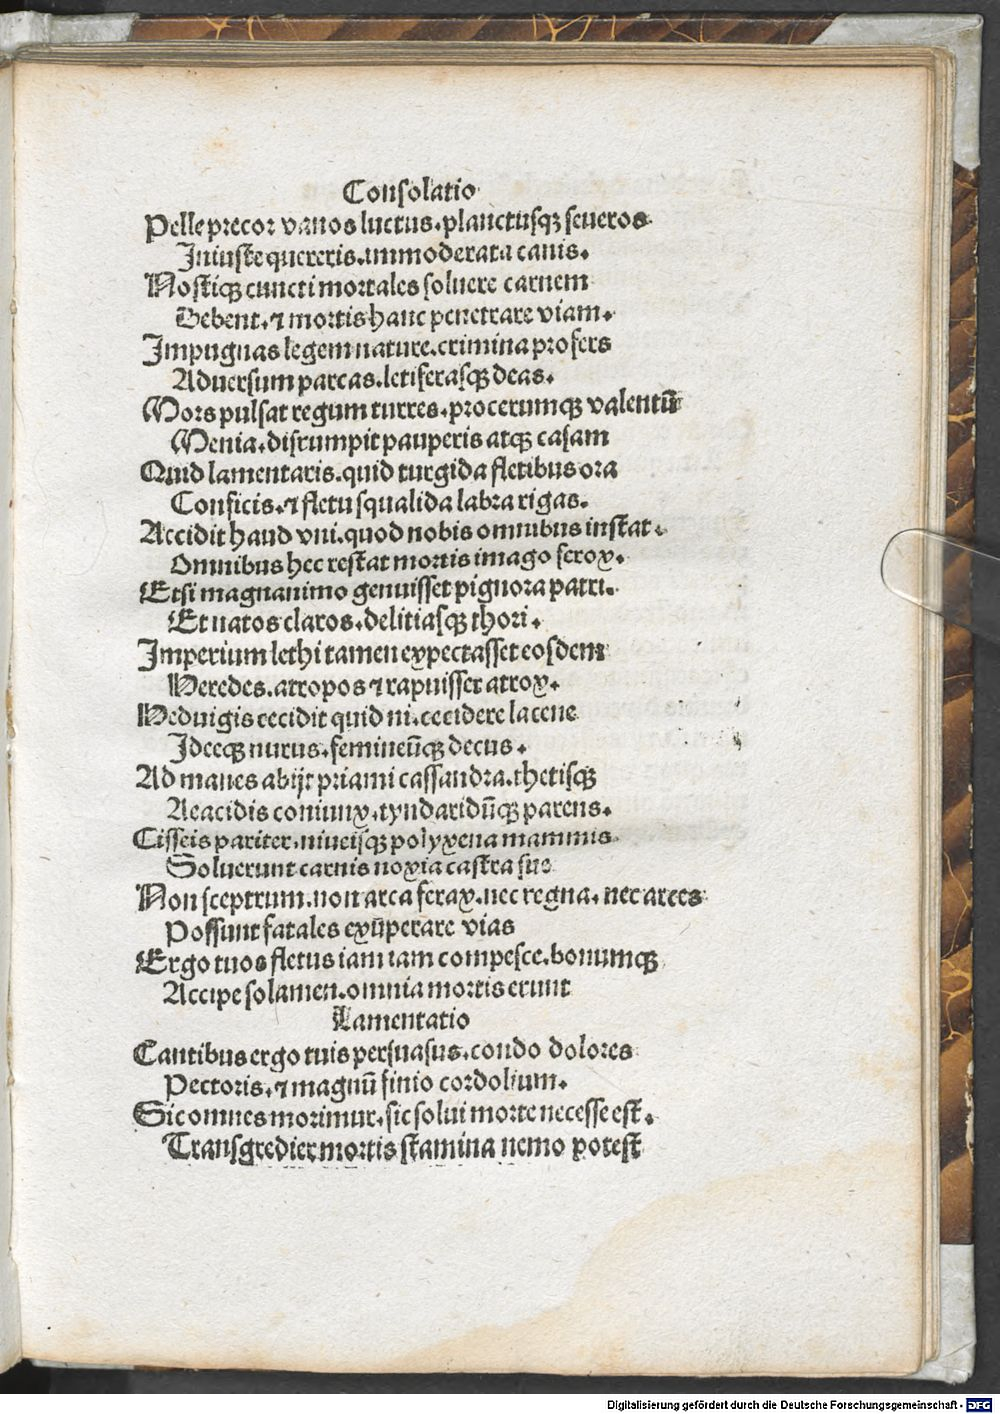 Consolatio
Pelle precor vanos luctus. planctusqꝫ seueros
Iniuste quereris. immoderata canis.
Nostiqꝫ cuncti mortales soluere carnem
Debent. ⁊ mortis hanc penetrare viam.
Impugnas legem nature. crimina profers
Aduersum parcas. letiferasqꝫ deas.
Mors pulsat regum turres. procerumqꝫ valentū
Menia. disrumpit pauperis atqꝫ casam
Quid lamentaris. quid turgida fletibus ora
Conficis. ⁊ fletu squalida labra rigas.
Accidit haud vni. quod nobis omnibus instat.
Omnibus hec restat mortis imago ferox.
Etsi magnanimo genuisset pignora patri.
Et natos claros. delitiasqꝫ thori.
Imperium lethi tamen expectasset eosdem
Heredes. atropos ⁊ rapuisset atrox.
Heduigis cecidit quid ni. cecidere lacene
Ideeqꝫ nurus. femineūqꝫ decus.
Ad manes abijt priami cassandra. thetisqꝫ
Aeacidis coniunx. tyndaridūqꝫ parens.
Cisseis pariter. niueisqꝫ polyxena mammis
Soluerunt carnis noxia castra sue
Non sceptrum. non arca ferax. nec regna. nec arces
Possunt fatales exūperare vias
Ergo tuos fletus iam iam compesce. bonumqꝫ
Accipe solamen. omnia mortis erunt
Lamentatio
Cantibus ergo tuis persuasus. condo dolores
Pectoris. ⁊ magnū finio cordolium.
Sic omnes morimur. sic solui morte necesse est.
Transgredier mortis stamina nemo potest
Digitalisierung gefördert durch die Deutsche Forschungsgemeinschaft - DFG